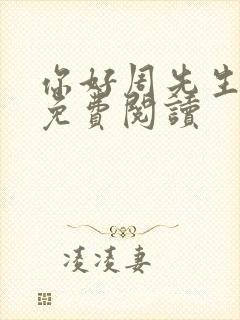 你好周先生
免費閱讀
凌凌妻